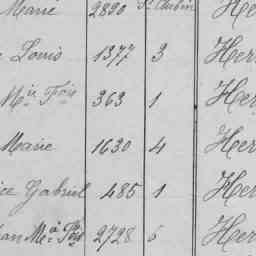 Marie 2890 St Aubin Her
Louis 1377 3 Her
Mie Fçse 363 1 Her
Marie 1630 4 Her
ice Gabriel 485 1 Her
ean Ma Fçse 2728 5 Her